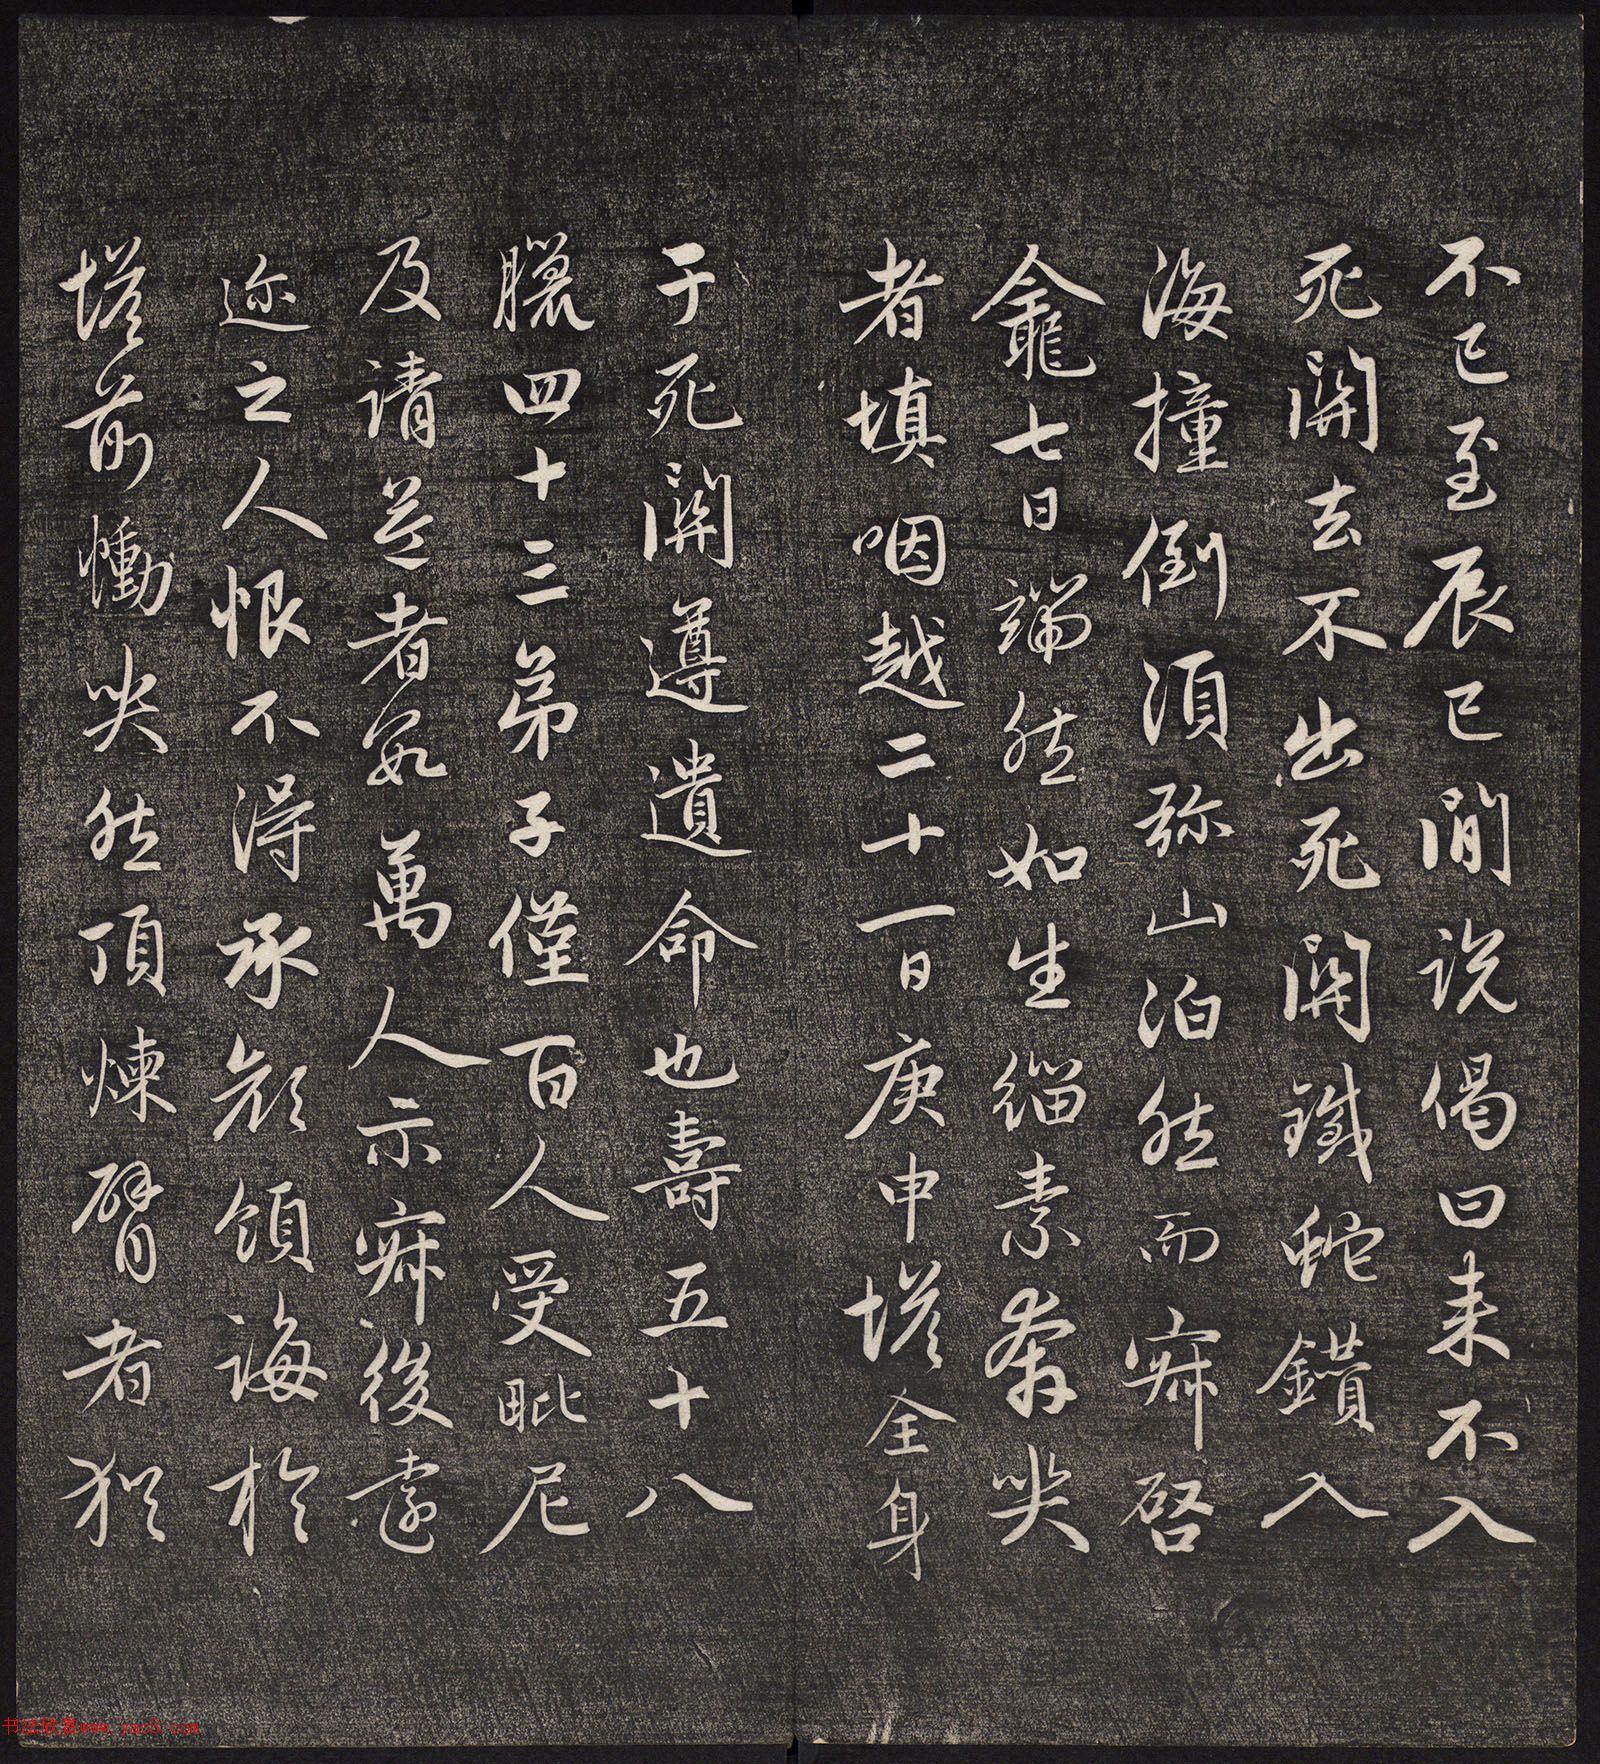 不已至辰巳間說偈曰來不入
死關去不出死關鐵蛇鑽入
海撞倒須弥山泊然而寂啓
龕七日端然如生緇素奔哭
者填咽越二十一日庚申塔全身
于死關遵遺命也壽五十八
臘四十三弟子僅百人受毗尼
及請益者數萬人示寂後遠
迩之人恨不得承顏領誨於
塔前慟哭然頂煉臂者猶
书法欣赏www.yac8.com